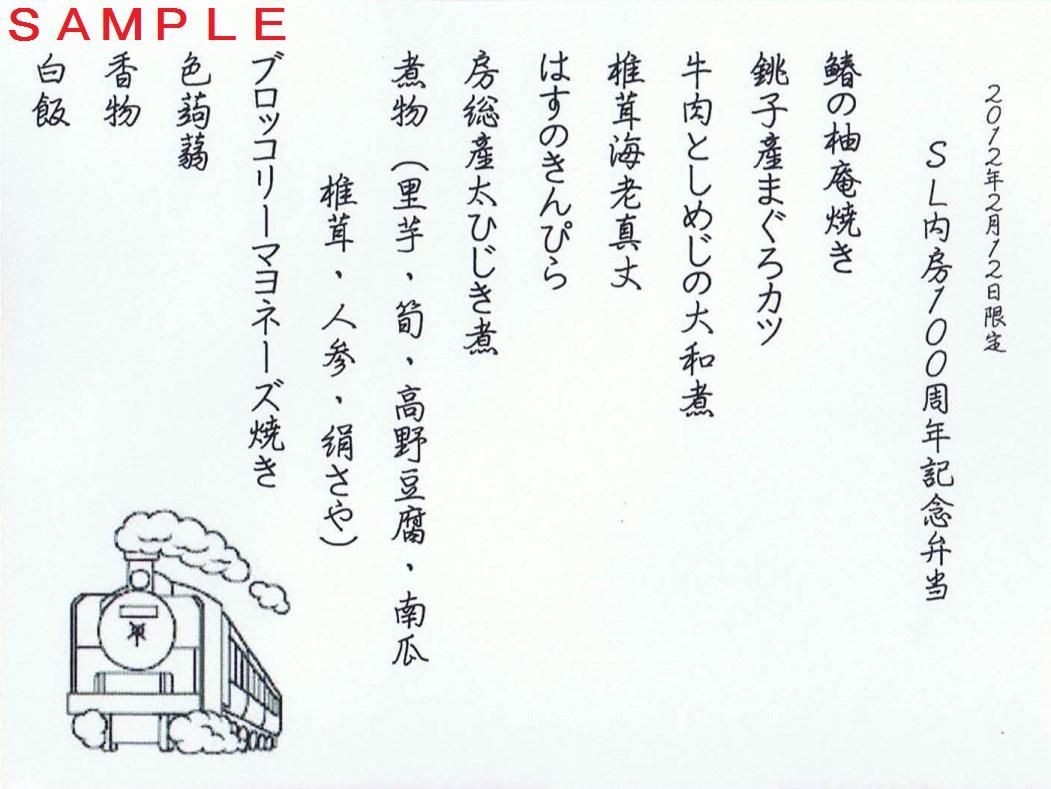 SAMPLE
2012年2月12日限定
SL内房100周年記念弁当
鰆の柚庵焼き
銚子産まぐろカツ
牛肉としめじの大和煮
椎茸海老真丈
はすのきんぴら
房総産太ひじき煮
煮物（里芋、筍、高野豆腐、南瓜
椎茸、人参、絹さや）
ブロッコリーマヨネーズ焼き
色蒟蒻
香物
白飯